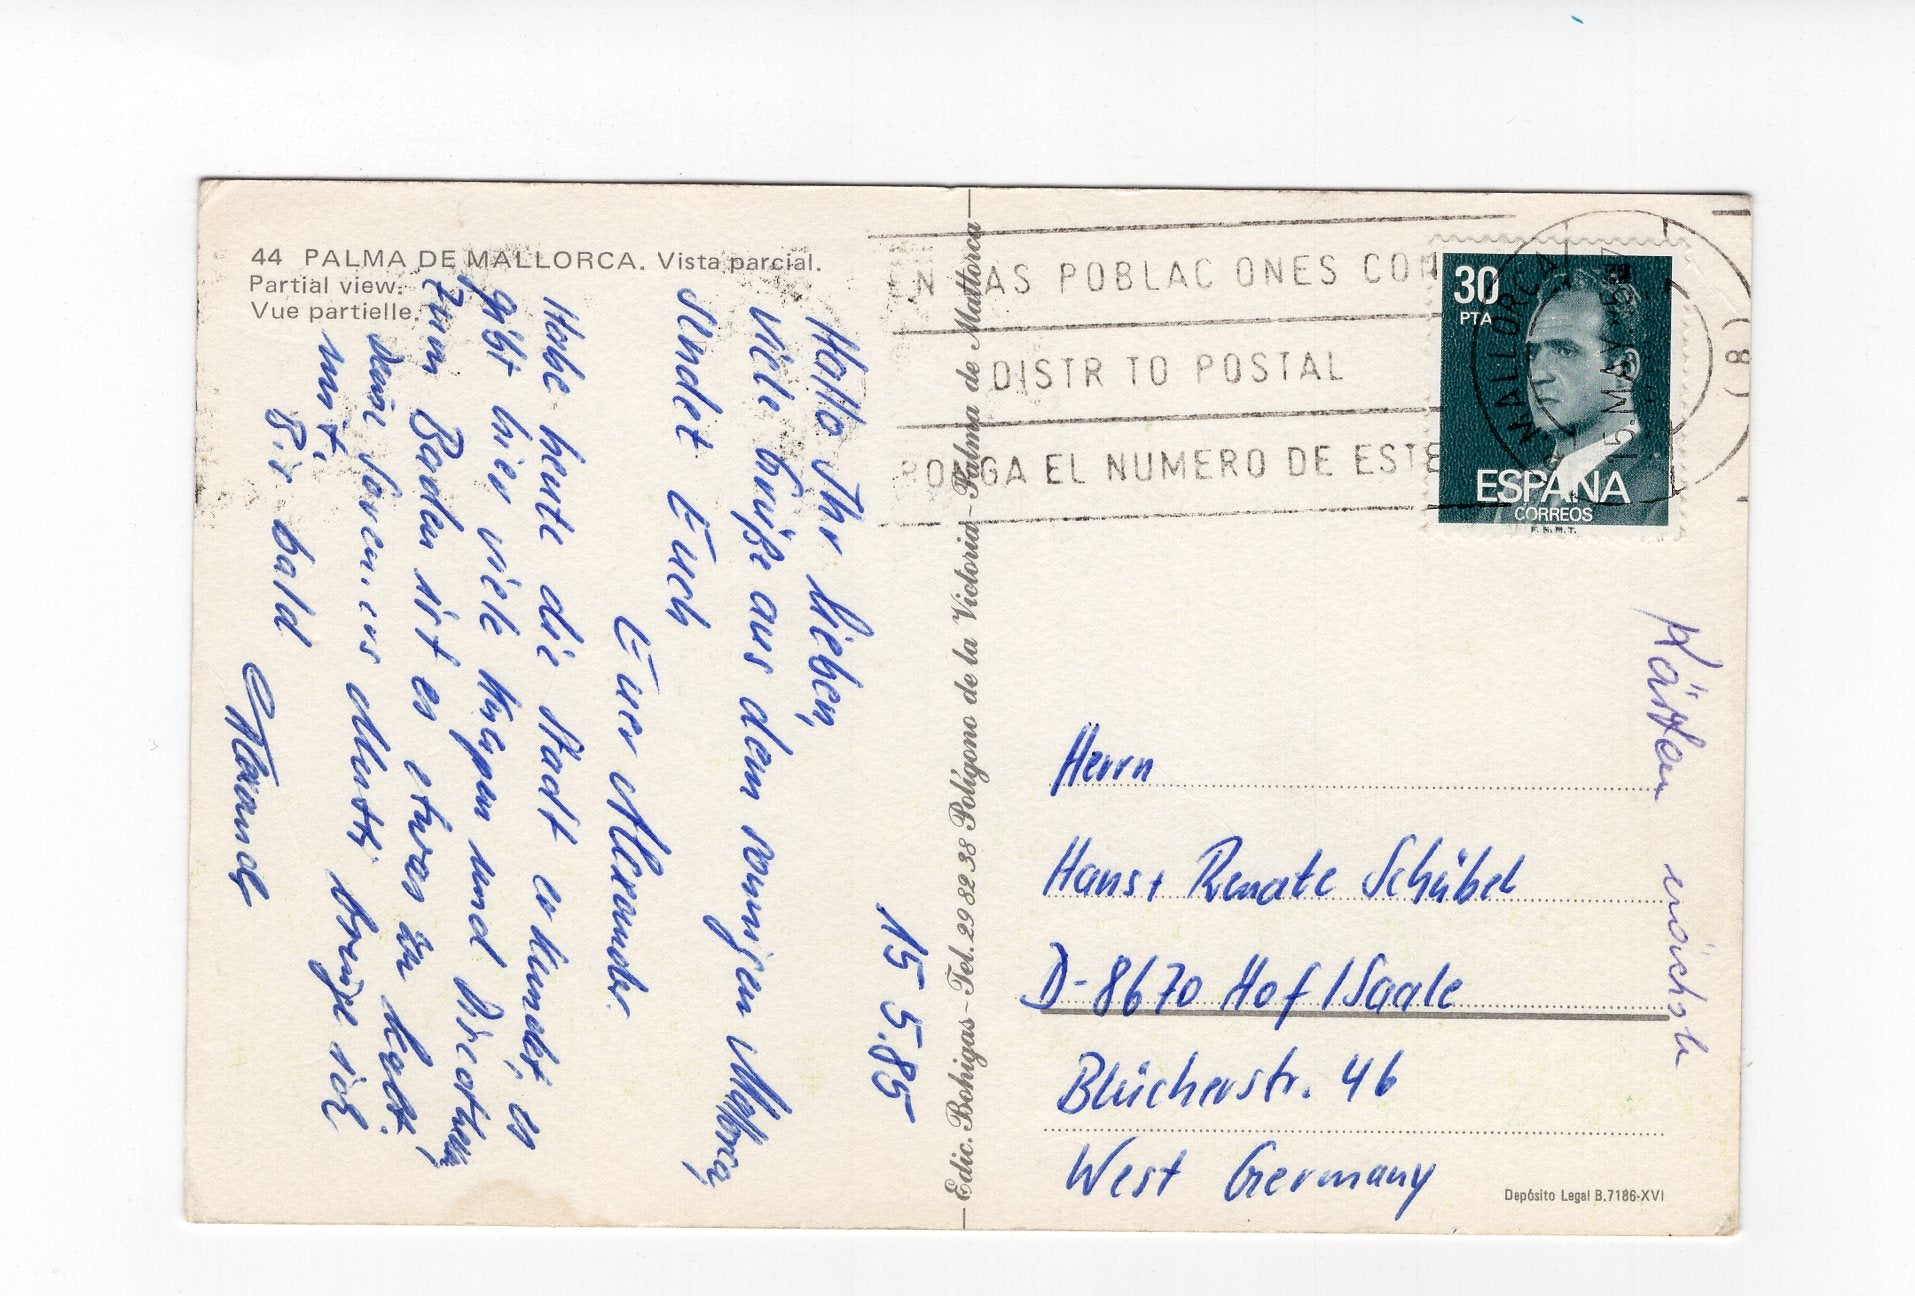 44 PALMA DE MALLORCA. Vista parcial.
Partial view.
Vue partielle.
15 5.85
Hallo Ihr lieben,
viele Grüße aus dem sonnigen Mallorca,
sendet Euch
Euer Alexander.
Habe heute die Stadt erkundet, es
gibt hier viele Kneipen und
zum Baden ist es etwas zu kalt,
Mutti bringe ich
mit.
Bis bald
Edic. Bohigas - Tel. 29 82 38 Polígono de la Victoria - Palma de Mallorca
EN LAS POBLAC ONES CON
DISTR TO POSTAL
PONGA EL NUMERO DE ESTE
MALLORCA
15.MAY
(8)
30
PTA
ESPAÑA
CORREOS
F.N.M.T.
Herrn
Hans + Renate Schübel
D-8670 Hof/Saale
Blücherstr. 46
West Germany
Depósito Legal B.7186-XVI